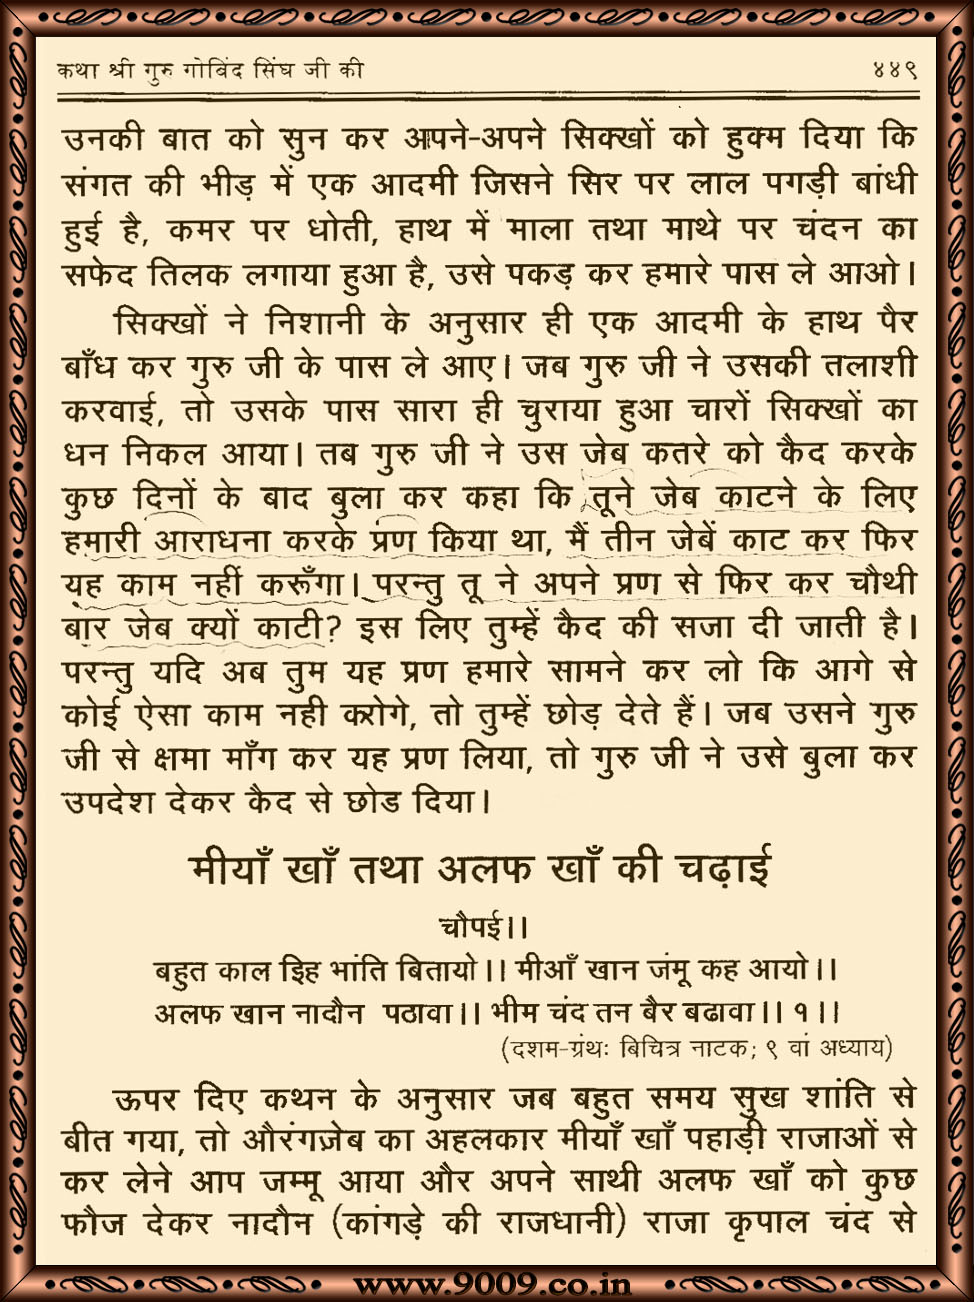 कथा श्री गुरु गोबिंद सिंघ जी की ४४९
उनकी बात को सुन कर अपने-अपने सिक्खों को हुक्म दिया कि
संगत की भीड़ में एक आदमी जिसने सिर पर लाल पगड़ी बांधी
हुई है, कमर पर धोती, हाथ में माला तथा माथे पर चंदन का
सफेद तिलक लगाया हुआ है, उसे पकड़ कर हमारे पास ले आओ।
सिक्खों ने निशानी के अनुसार ही एक आदमी के हाथ पैर
बाँध कर गुरु जी के पास ले आए। जब गुरु जी ने उसकी तलाशी
करवाई, तो उसके पास सारा ही चुराया हुआ चारों सिक्खों का
धन निकल आया। तब गुरु जी ने उस जेब कतरे को कैद करके
कुछ दिनों के बाद बुला कर कहा कि तूने जेब काटने के लिए
हमारी आराधना करके प्रण किया था, मैं तीन जेबें काट कर फिर
यह काम नहीं करूँगा। परन्तु तू ने अपने प्रण से फिर कर चौथी
बार जेब क्यों काटी? इस लिए तुम्हें कैद की सजा दी जाती है।
परन्तु यदि अब तुम यह प्रण हमारे सामने कर लो कि आगे से
कोई ऐसा काम नही करोगे, तो तुम्हें छोड़ देते हैं। जब उसने गुरु
जी से क्षमा माँग कर यह प्रण लिया, तो गुरु जी ने उसे बुला कर
उपदेश देकर कैद से छोड दिया।
मीयाँ खाँ तथा अलफ खाँ की चढ़ाई
चौपई।।
बहुत काल इिह भांति बितायो।। मीआँ खान जंमू कह आयो।।
अलफ खान नादौन पठावा।। भीम चंद तन बैर बढावा।। १।।
(दशम-ग्रंथः बिचित्र नाटक; ९ वां अध्याय)
ऊपर दिए कथन के अनुसार जब बहुत समय सुख शांति से
बीत गया, तो औरंगज़ेब का अहलकार मीयाँ खाँ पहाड़ी राजाओं से
कर लेने आप जम्मू आया और अपने साथी अलफ खाँ को कुछ
फौज देकर नादौन (कांगड़े की राजधानी) राजा कृपाल चंद से
www.9009.co.in